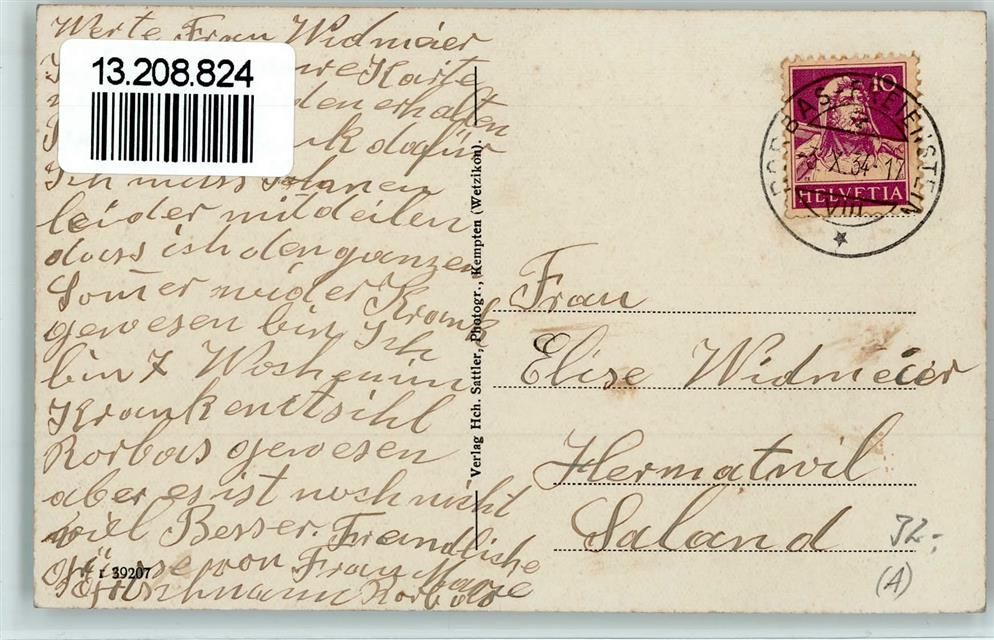 Werte Frau Widmeier
13.208.824
Karte
den erhalten
dafür
Ich muss Ihnen
leider mitdeilen
dass ich den ganzen
Somer wider Krank
gewesen bin Ich
bin 7 Wochen im
Krankenttsihl
Rorbas gewesen
aber es ist noch nicht
viel Besser. Freundliche
Grüsse von Frau
Rorbas
r 39207
Verlag Hch. Sattler, Photogr., Kempten (Wetzikon).
10
HELVETIA
RORBAS-FREIENSTEIN
X. 34-17
VIII
Frau
Elise Widmeier
Hermatwil
Saland
32.-
(A)